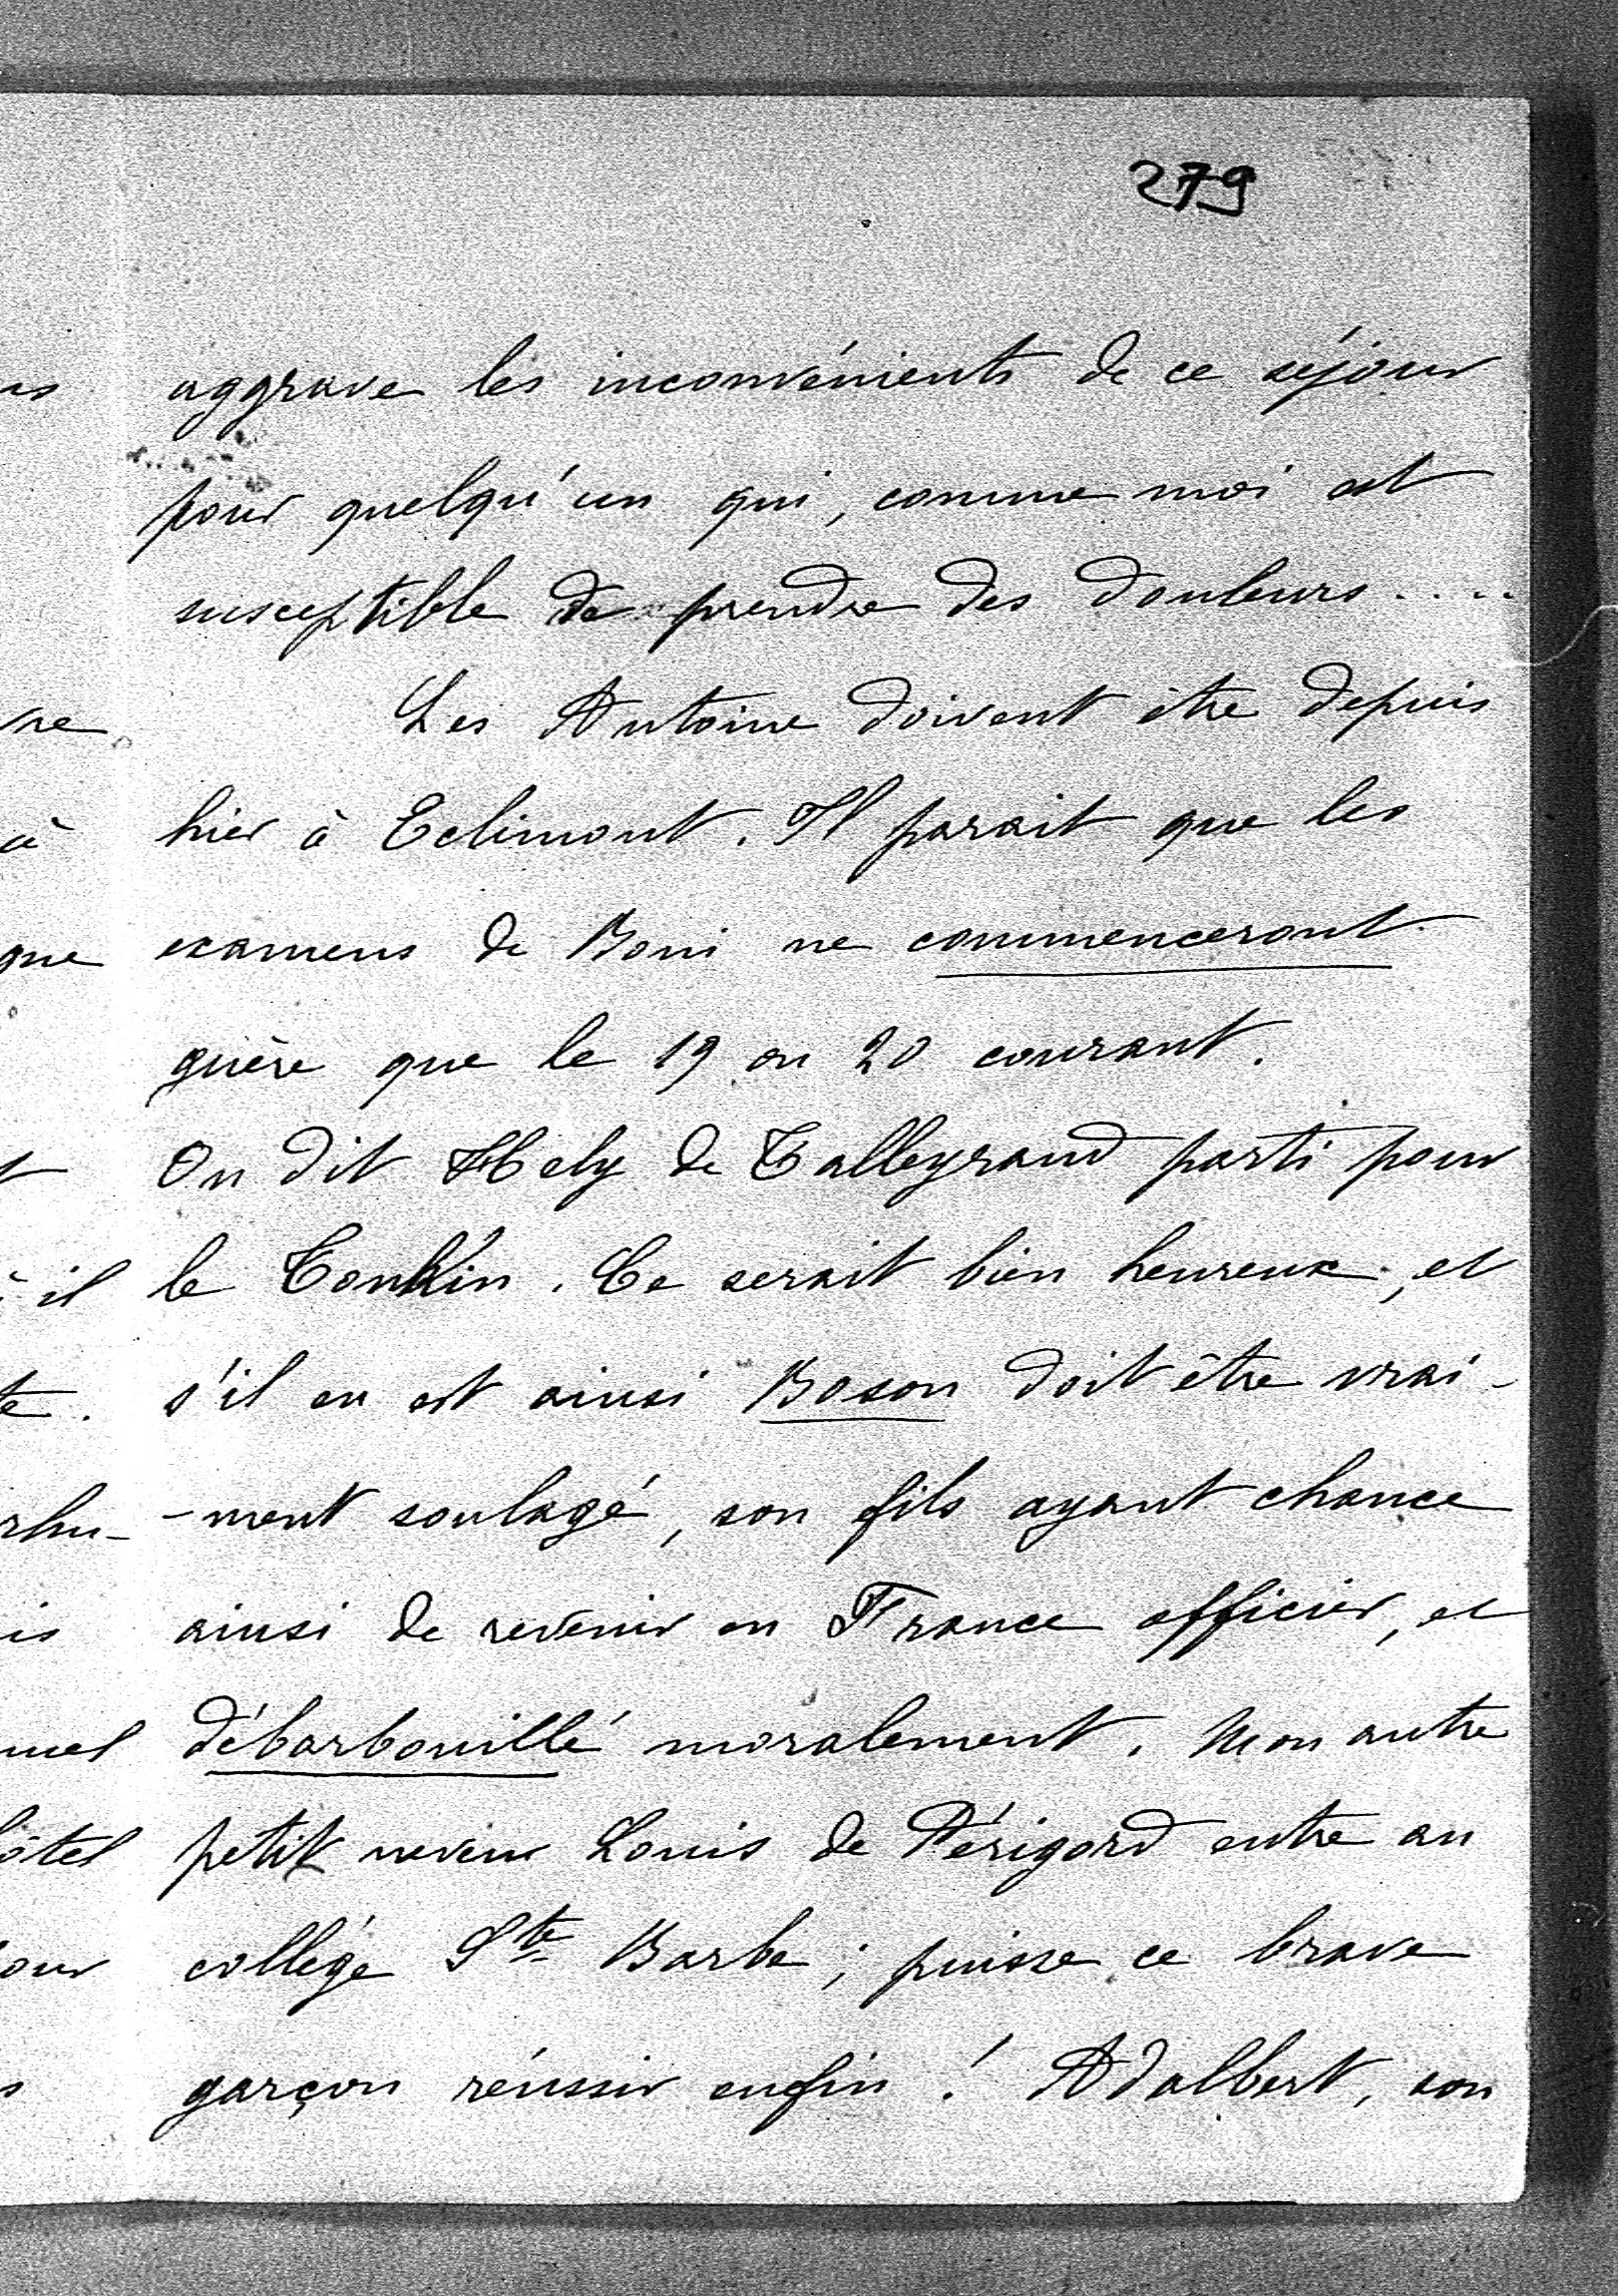 279
aggrave les inconvénients de ce séjour
pour quelqu'un qui, comme moi est
susceptible de prendre des douleurs.....
Les Antoine doivent être depuis
hier à Eclimont. Il parait que les
examens de Boni ne commenceront
guère que le 19 ou 20 courant.
On dit Hely de Talleyrand parti pour
le Tonkin. Ce serait bien heureux, et
s'il en est ainsi Boson doit être vrai-
-ment soulagé, son fils ayant chance
ainsi de revenir en France officier, et
débarbouillé moralement. Mon autre
petit neveu Louis de Périgord entre au
collége Ste Barbe; puisse ce brave
garçon réussir enfin! Adalbert, son